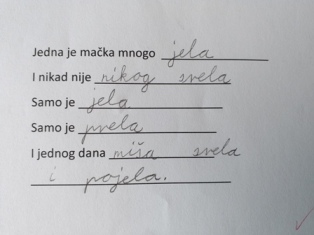 Jedna je mačka mnogo jela
I nikad nije nikog srela
Samo je jela
Samo je prela
I jednog dana miša srela
i pojela.